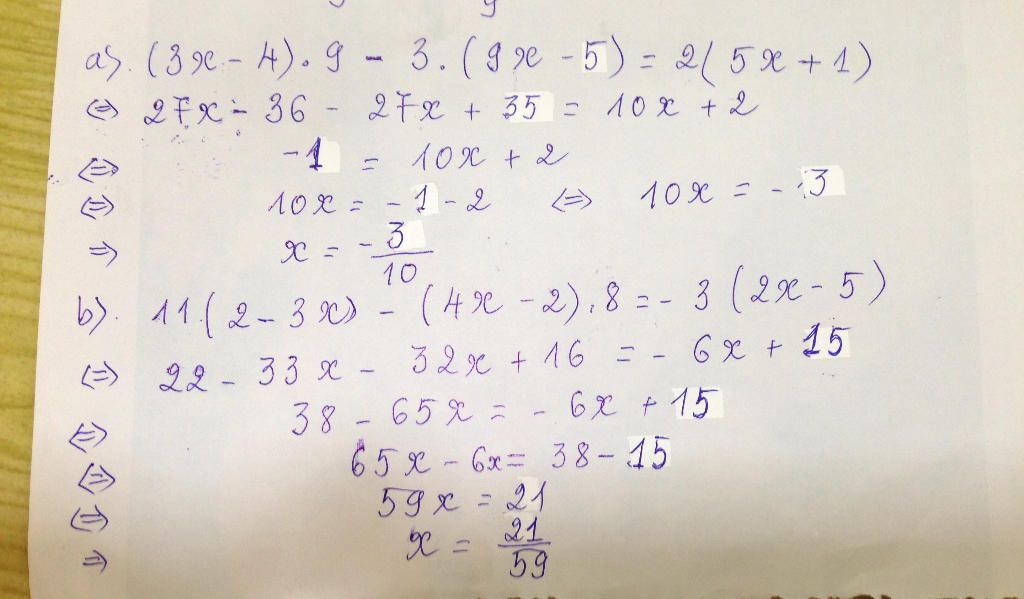 a). (3x - 4) . 9 - 3 . (9x - 5) = 2(5x + 1)
⇔ 27x - 36 - 27x + 35 = 10x + 2
⇔ -1 = 10x + 2
⇔ 10x = -1 - 2 ⇔ 10x = -3
⇒ x = -3/10
b). 11.(2 - 3x) - (4x - 2).8 = -3(2x - 5)
⇔ 22 - 33x - 32x + 16 = -6x + 15
⇔ 38 - 65x = -6x + 15
⇔ 65x - 6x = 38 - 15
⇔ 59x = 21
⇒ x = 21/59